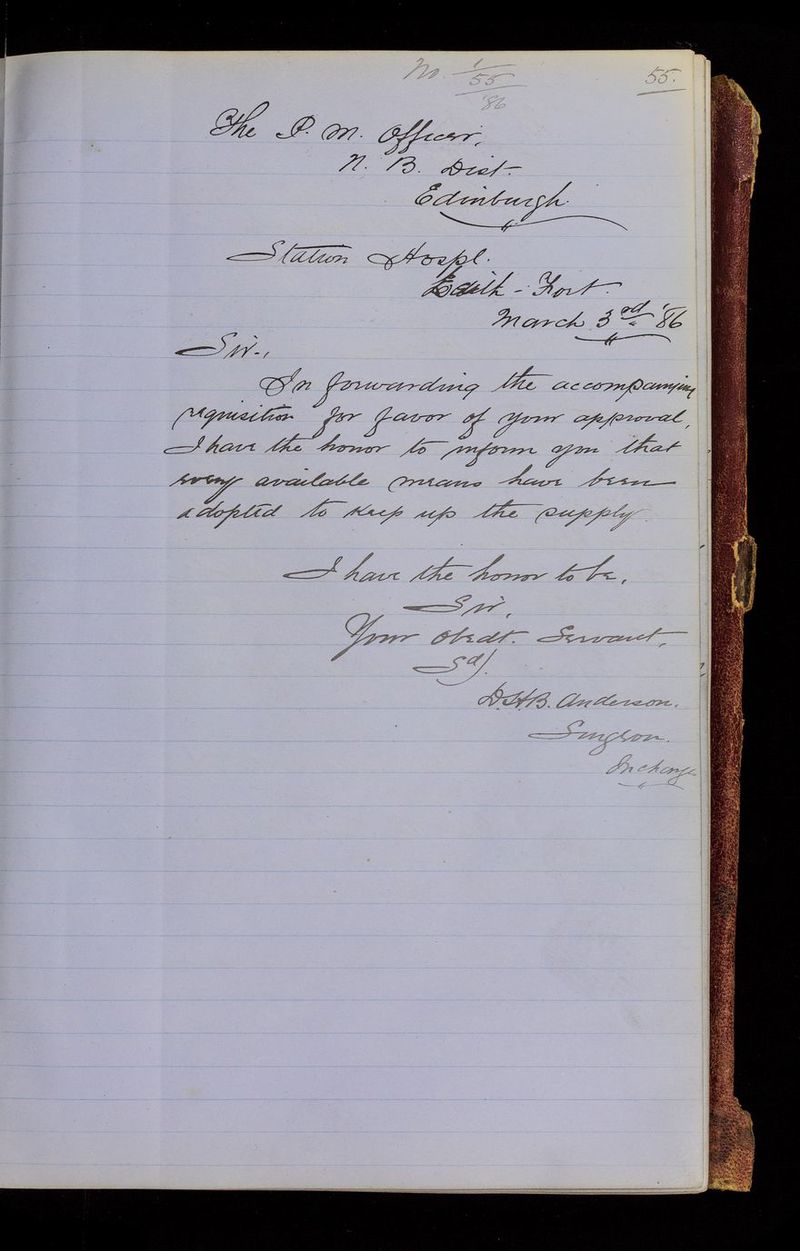 No. 1/55/86
55.
The P. M. Officer,
N. B. Dist
Edinburgh
Station Hospl.
Leith - Fort
March 3rd '86
Sir.,
In forwarding the accompanying
requisition for favor of your approval,
I have the honor to inform you that
every available means have been
adopted to keep up the supply.
I have the honor to be,
Sir,
Your Obedt. Servant,
Sd/.
D.H.B. Anderson.
Surgeon.
Incharge